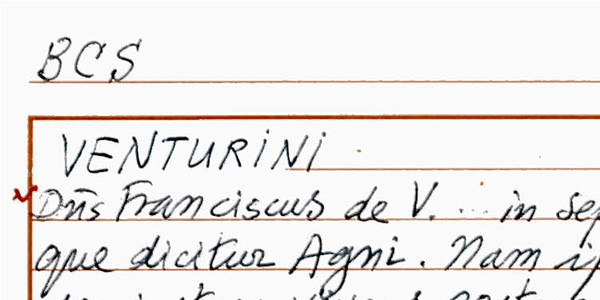 BCS
VENTURINI
Dñs Franciscus de V. ... in sep
que dicitur Agni. Nam ip